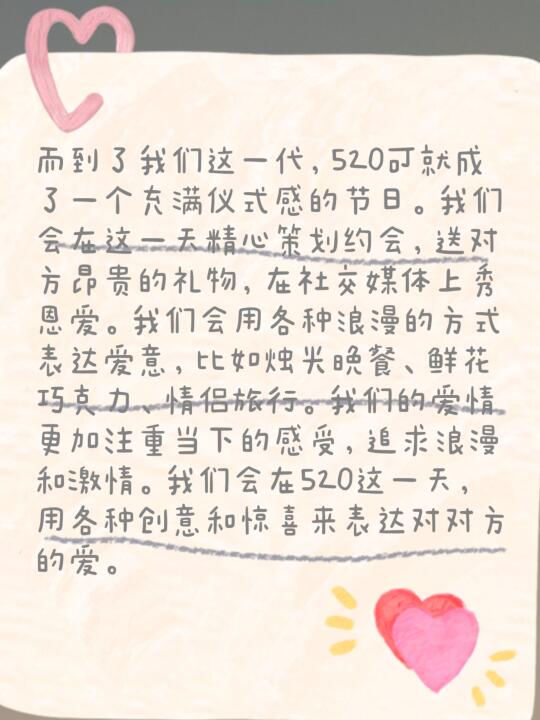 而到了我们这一代，520可就成
了一个充满仪式感的节日。我们
会在这一天精心策划约会，送对
方昂贵的礼物，在社交媒体上秀
恩爱。我们会用各种浪漫的方式
表达爱意，比如烛光晚餐、鲜花
巧克力、情侣旅行。我们的爱情
更加注重当下的感受，追求浪漫
和激情。我们会在520这一天，
用各种创意和惊喜来表达对对方
的爱。